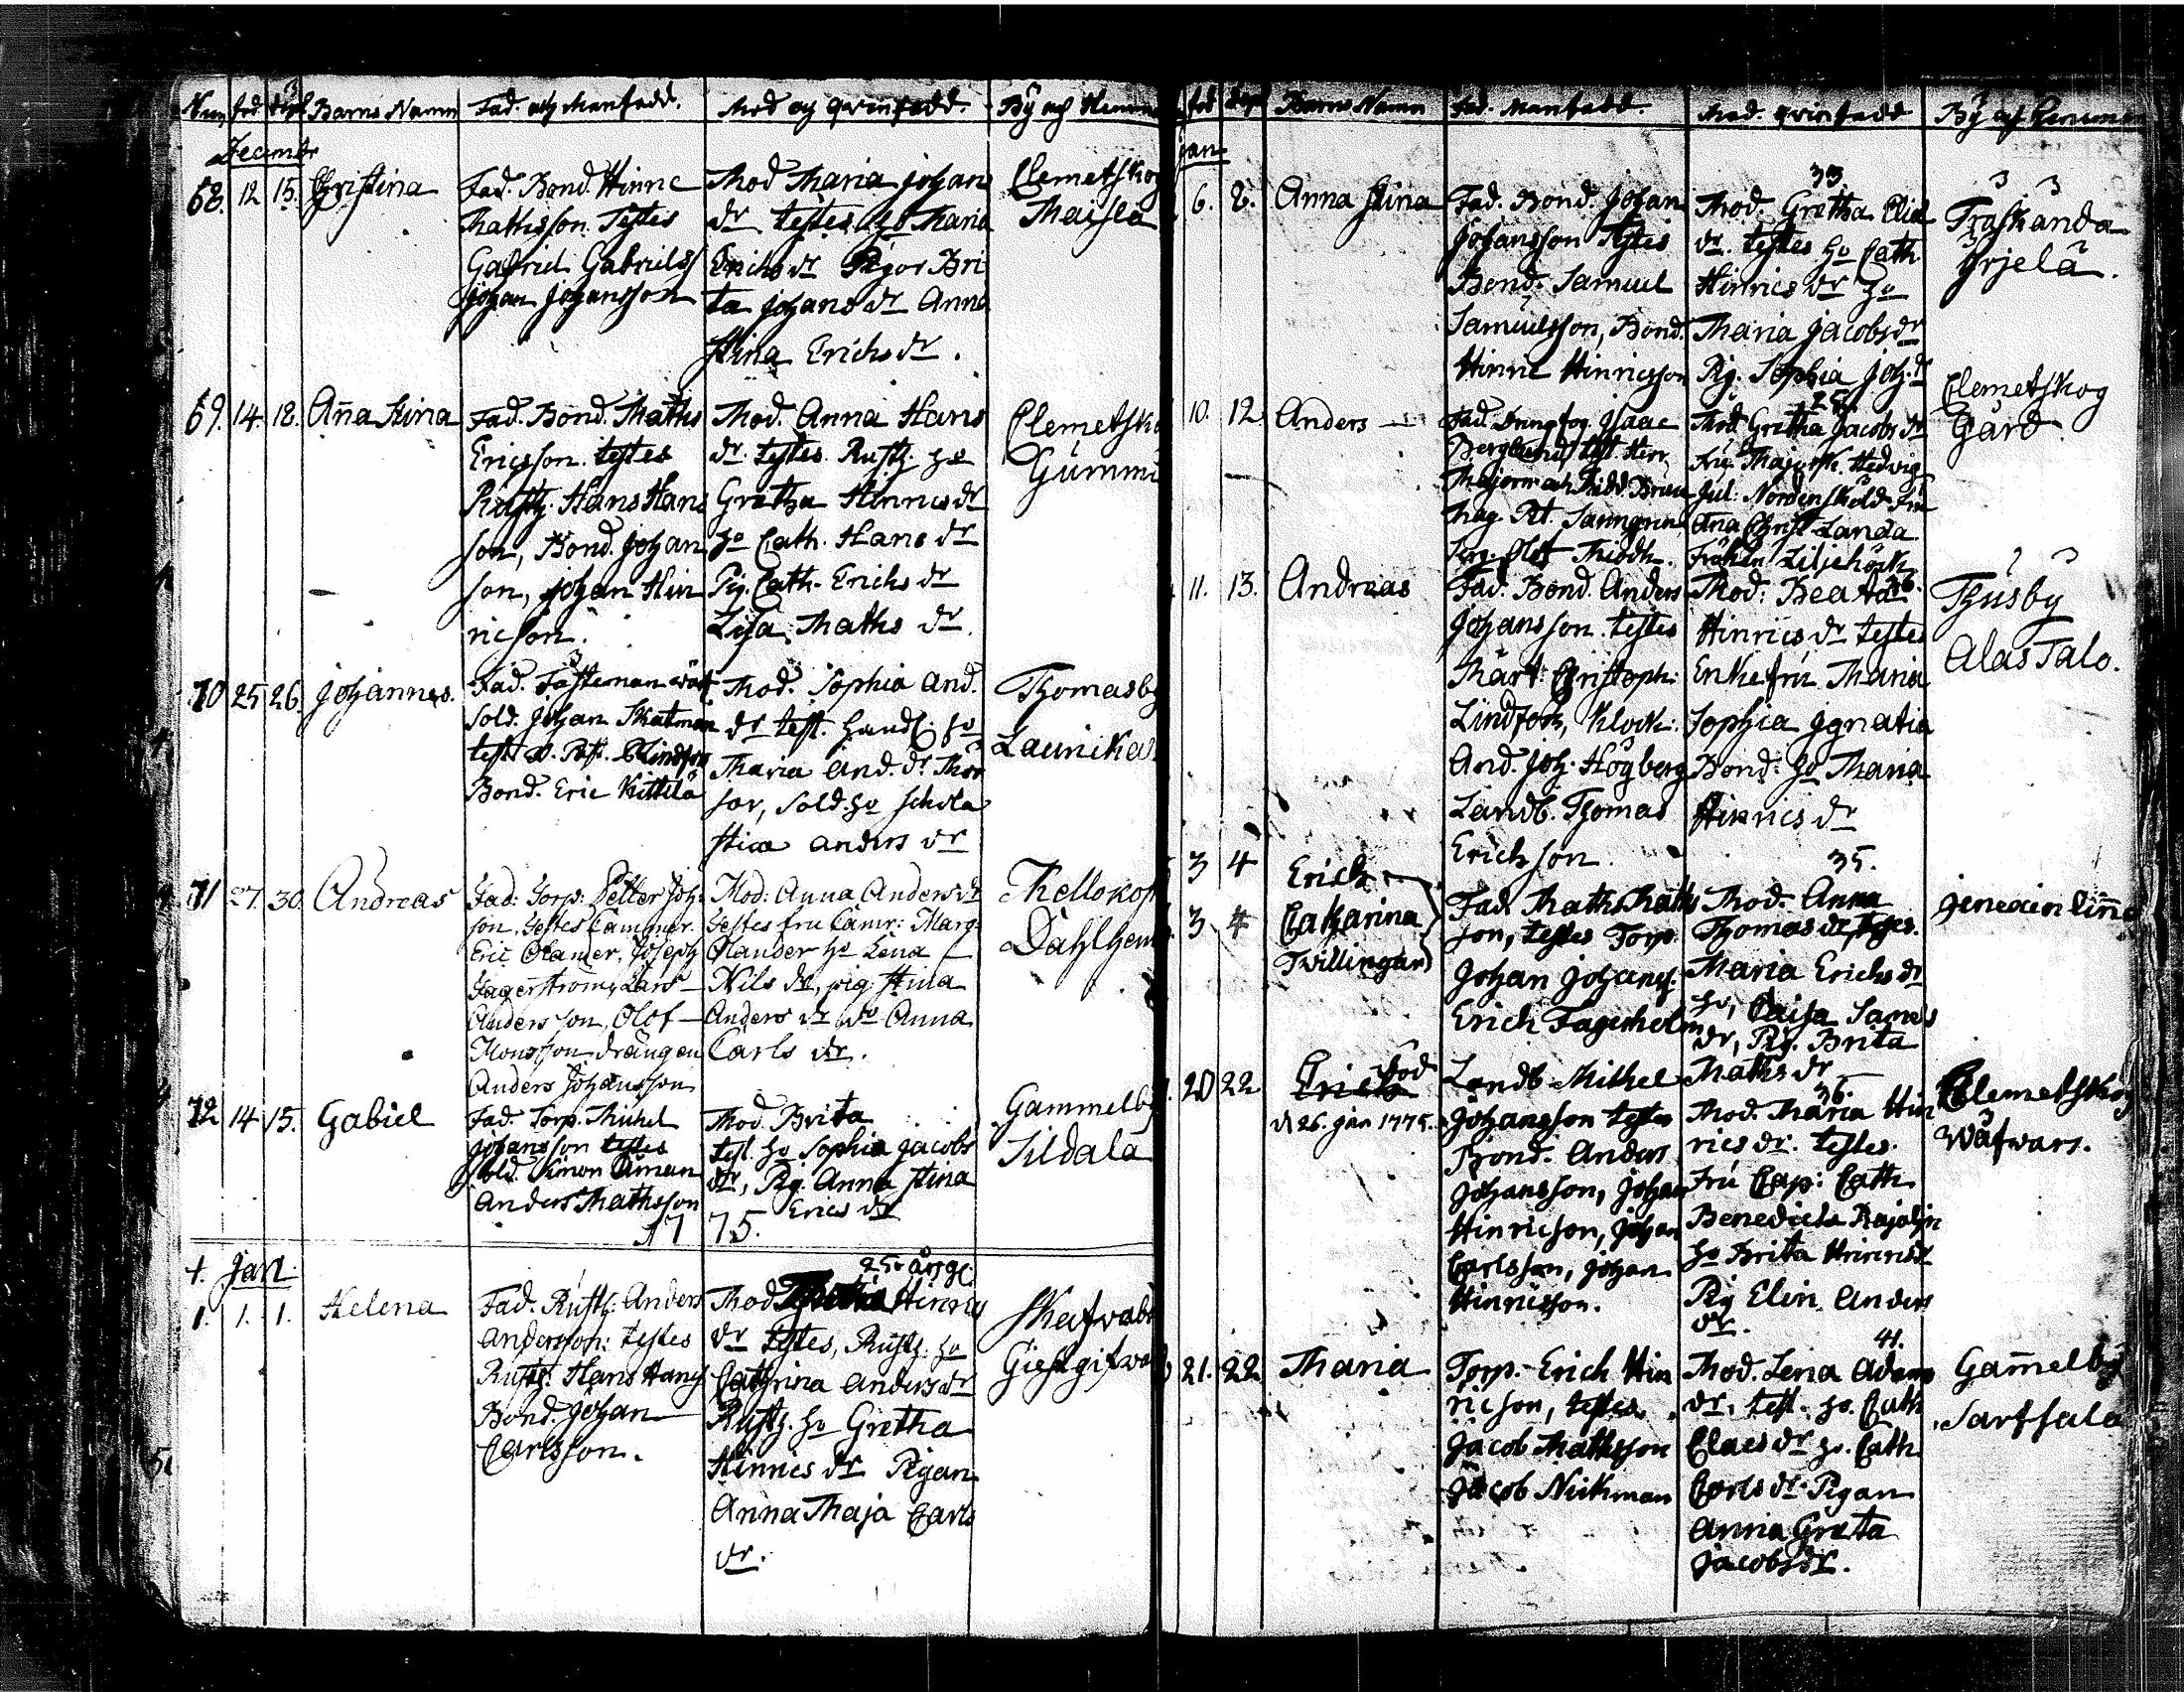 Num fød döpt Barns Namn Fad. och Manfadd. Mod och qvinfadd. By och Hemma
Decembr
68. 12 15. Christina
Fad. Bond. Hinric
Mathsson. Testes
Gabriel Gabriels
Johan Johansson
Mod Maria Johans
dr testes ho Maria
Erichs dr Pigor Bri
ta Johans dr Anna
Stina Erichs dr.
Clemetskog
Maisla
69. 14. 18. Anna Stina
Fad. Bond. Maths
Ericsson. testes
Rusth. Hans Hans
son, Bond. Johan
son, Johan Hin
ricson.
Mod. Anna Hans
dr. testes. Rusth. ho
Gretha Hinrics dr
ho Cath. Hans dr
Pig. Cath. Erichs dr
Lisa Maths dr.
Clemetsko
Gummi
70 25 26. Johannes.
Fad. Fästeman
Sold. Johan Skatman
test. Lindfors
Bond. Eric Kittilä
Mod. Sophia And.
dr test. ho
Maria And. dr
sor, Sold. ho Schola
stica Anders dr
Thomasby
Launikas
71 27. 30. Andreas
Fad: Torp: Petter Joh:
son, Testes Cammer.
Eric Olander, Joseph
Fagerström, Lars
Andersson, Olof
Monsson drängen
Anders Johansson
Mod: Anna Anders dr
Testes fru Camr: Marg:
Olander ho Lena
Nils dr, pig: Stina
Anders dr do Anna
Carls dr.
Mellokop
Dahlhem
72 14 15. Gabiel
Fad. Torp. Michel
Johansson testes
Sold. Simon Siman
Anders Mathsson
Mod Brita
test. ho Sophia Jacobs
dr, Pig. Anna Stina
Erics dr
Gammelby
Sildala
1775.
Jan.
1. 1. 1. Helena
Fad. Rusth: Anders
Andersson: testes
Rusth. Hans Hans
Bond. Johan
Carlsson.
25 årige.
Mod Hinrics
dr testes, Rusth. ho
Cathrina Anders dr
Rusth. ho Gretha
Hinrics dr Pigan
Anna Maja Carls
dr.
Skafvabö
fød döpt Barns Namn Fad. Manfadd. Mod. qvinfadd By och Hemman
Jan
6. 8. Anna Stina
Fad. Bond. Johan
Johansson Testes
Bond. Samuel
Samuelsson, Bond.
Hinric Hinricsson
33
Mod. Gretha Elia
dr. testes ho Cath
Hinrics dr ho
Maria Jacobs dr
Pig. Sophia Joh. dr
Träskanda
Yrjelä.
10. 12 Anders
Isaac
Berglund test. Herr
Mag. Pet.
Mod Gretha Jacobs dr
Fru Hedvig
Jul: Nordenskold Fru
Ana Christ Landa
Fröken Liljehöök
Clemetskog
Gård
11. 13. Andreas
Fad. Bond. Anders
Johansson. testes
Märt: Christoph:
Lindfors, Klock:
And. Joh. Högberg
Landb. Thomas
Erichson.
36.
Mod: Beata
Hinrics dr testes
Enkefru Maria
Sophia Ignatia
Bond: ho Maria
Hinrics dr
Thusby
Alas Talo.
3 4 Erich
3 4 Catharina
Twillingar
Fad. Maths Maths
son, testes Torp.
Johan Johans.
Erich Fagerholm
35.
Mod. Anna
Thomas dr, testes.
Maria Erichs dr
ho, Caisa Sam. s
dr, Pig. Brita
Maths dr
20 22. Erich död
d 26. jan 1775.
Landb Mithel
Johansson testes
Bond. Anders
Johansson, Johan
Hinricson, Johan
Carlsson, Johan
Hinricsson.
36.
Mod. Maria Hin
rics dr. testes.
Fru Cap: Cath
Benedicta Rajalin
ho Brita Hinrics dr
Pig Elin Anders
dr.
Clemetskog
Wäfwars.
21. 22. Maria
Torp. Erich Hin
ricson, testes.
Jacob Mathsson
Jacob Nickman
41.
Mod. Lena Adams
dr, test. ho. Cath
Claes dr ho. Cath
Carls dr Pigan
Anna Greta
Jacobs dr.
Gammelby
Sarfsala